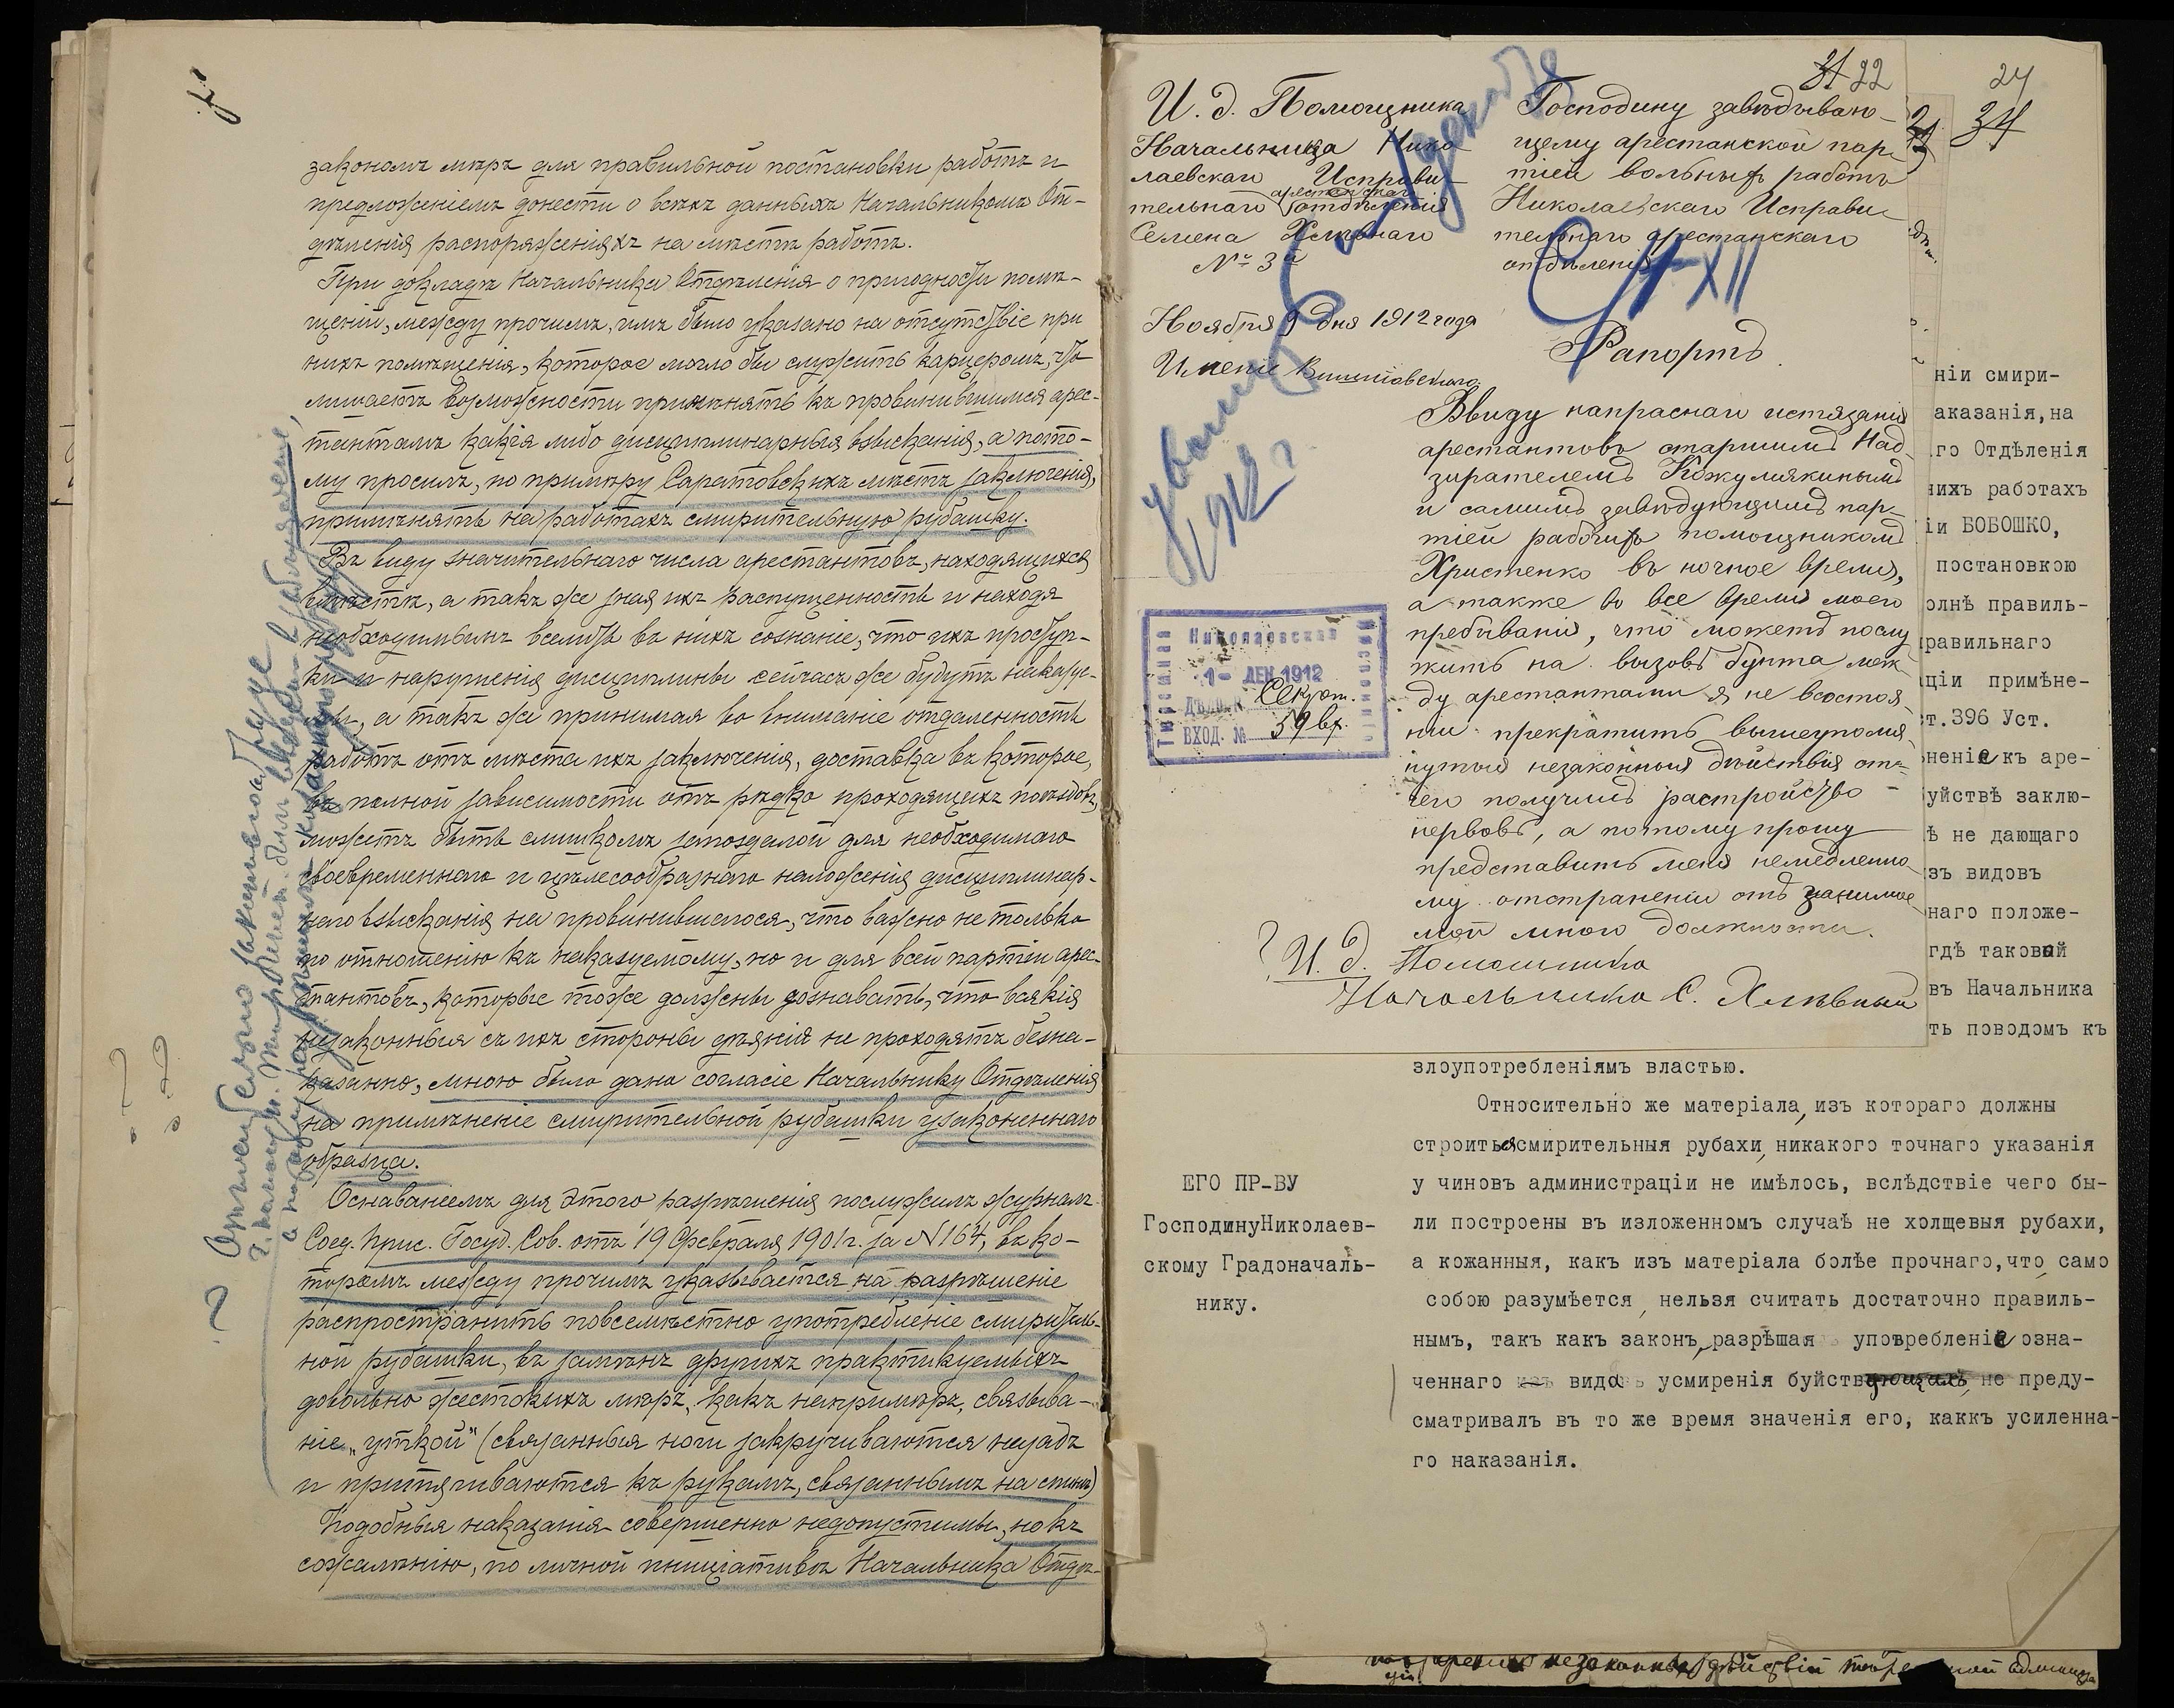 закономъ мѣръ для правильной постановки работъ и
предложеніемъ донести о всѣхъ данныхъ Начальникомъ От-
дѣленія распоряженіяхъ на мѣстѣ работъ.
При докладѣ Начальника Отдѣленія о пригодности помѣ-
щеній, между прочимъ, имъ было указано на отсутствіе при
нихъ помѣщенія, которое могло бы служить карцеромъ, что
лишаетъ возможности примѣнять къ провинившимся арес-
тантамъ какія либо дисциплинарныя взысканія, а пото-
му просилъ, по примѣру Саратовскихъ мѣстъ заключенія,
примѣнять на работахъ смирительную рубашку.
Въ виду значительнаго числа арестантовъ, находящихся
вмѣстѣ, а такъ же зная ихъ распущенность и находя
необходимымъ вселить въ нихъ сознаніе, что ихъ проступ-
ки и нарушенія дисциплины сейчасъ же будутъ наказуе-
мы, а такъ же принимая во вниманіе отдаленность
работъ отъ мѣста ихъ заключенія, доставка въ которое,
въ полной зависимости отъ рѣдко проходящихъ поѣздовъ,
можетъ быть слишкомъ запоздалой для необходимаго
своевременнаго и цѣлесообразнаго наложенія дисциплинар-
наго взысканія на провинившегося, что важно не только
по отношенію къ наказуемому, но и для всей партіи арес-
тантовъ, которые тоже должны сознавать, что всякія
незаконныя съ ихъ стороны дѣянія не проходятъ безна-
казанно, мною было дано согласіе Начальнику Отдѣленія
на примѣненіе смирительной рубашки узаконеннаго
образца.
Основаніемъ для этого разрѣшенія послужилъ журналъ
Соед. Прис. Госуд. Сов. отъ 19 Февраля 1901 г. за № 164, въ ко-
торомъ между прочимъ указывается на разрѣшеніе
распространить повсемѣстно употребленіе смиритель-
ной рубашки, въ замѣнъ другихъ практикуемыхъ
довольно жестокихъ мѣръ, какъ напримѣръ, связыва-
ніе „уткой" (связанныя ноги закручиваются назадъ
и притягиваются къ рукамъ, связаннымъ на спинѣ)
Подобныя наказанія совершенно недопустимы, но къ
сожалѣнію, по личной иниціативѣ Начальника Отдѣ-
31 22
И. д. Помощника
Начальника Нико-
лаевскаго Исправи-
тельнаго арестанскаго отдѣленія
Семена Хлѣвнаго
№ 3й
Ноября 9 дня 1912 года
Господину завѣдываю-
щему арестанской пар-
тіей вольныхъ работъ
Николаевскаго Исправи-
тельнаго арестанскаго
отдѣленія
Рапортъ.
Ввиду напраснаго истязанія
арестантовъ старшимъ Над-
зирателемъ Кожумякинымъ
и самимъ завѣдующимъ пар-
тіей рабочихъ помощникомъ
Христенко въ ночное время,
а также во все время моего
пребыванія, что можетъ послу
жить на вызовъ бунта меж-
ду арестантами я не всостоя-
ніи прекратить вышеупомя-
нутыя незаконныя дѣйствія отъ-
чего получилъ растройство
нервовъ, а потому прошу
представить меня немедленно-
му отстраненію отъ занимае-
мой мною должности.
И. д. Помощника
Начальника С. Хлѣвный
Николаевская
1 - ДЕК 1912
Секрет.
ВХОД. № 59 вх.
24
34
ніи смири-
аказанія, на
го Отдѣленія
нихъ работахъ
іи БОБОШКО,
постановкою
олнѣ правиль-
равильнаго
ціи примѣне-
т.396 Уст.
неніе къ аре-
уйствѣ заклю-
ѣ не дающаго
зъ видовъ
наго положе-
гдѣ таковой
въ Начальника
ть поводомъ къ
злоупотребленіямъ властью.
Относительно же матеріала, изъ котораго должны
строиться смирительныя рубахи, никакого точнаго указанія
у чиновъ администраціи не имѣлось, вслѣдствіе чего бы-
ли построены въ изложенномъ случаѣ не холщевыя рубахи,
а кожанныя, какъ изъ матеріала болѣе прочнаго, что само
собою разумѣется, нельзя считать достаточно правиль-
нымъ, такъ какъ законъ, разрѣшая уповребленіе озна-
ченнаго вида усмиренія буйств не преду-
сматривалъ въ то же время значенія его, каккъ усиленна-
го наказанія.
ЕГО ПР-ВУ
ГосподинуНиколаев-
скому Градоначаль-
нику.